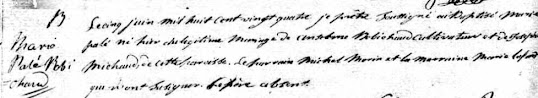 B
Le cinq juin mil huit cent vingt quatre je prêtre soussigné ai baptisé Marie
Marie
palé né hier du légitime mariage de Robichaud Cultivateur et de
Palé Robi
Michaud de cette paroisse. Le parrain Michel Morin et la marraine Marie
chaud
qui n'ont su signer. Le père absent.